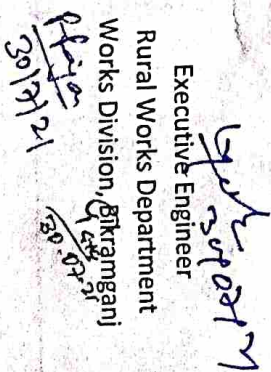 30/07/21
Executive Engineer
Rural Works Department
Works Division, Bikramganj
30.07.21
30/7/21